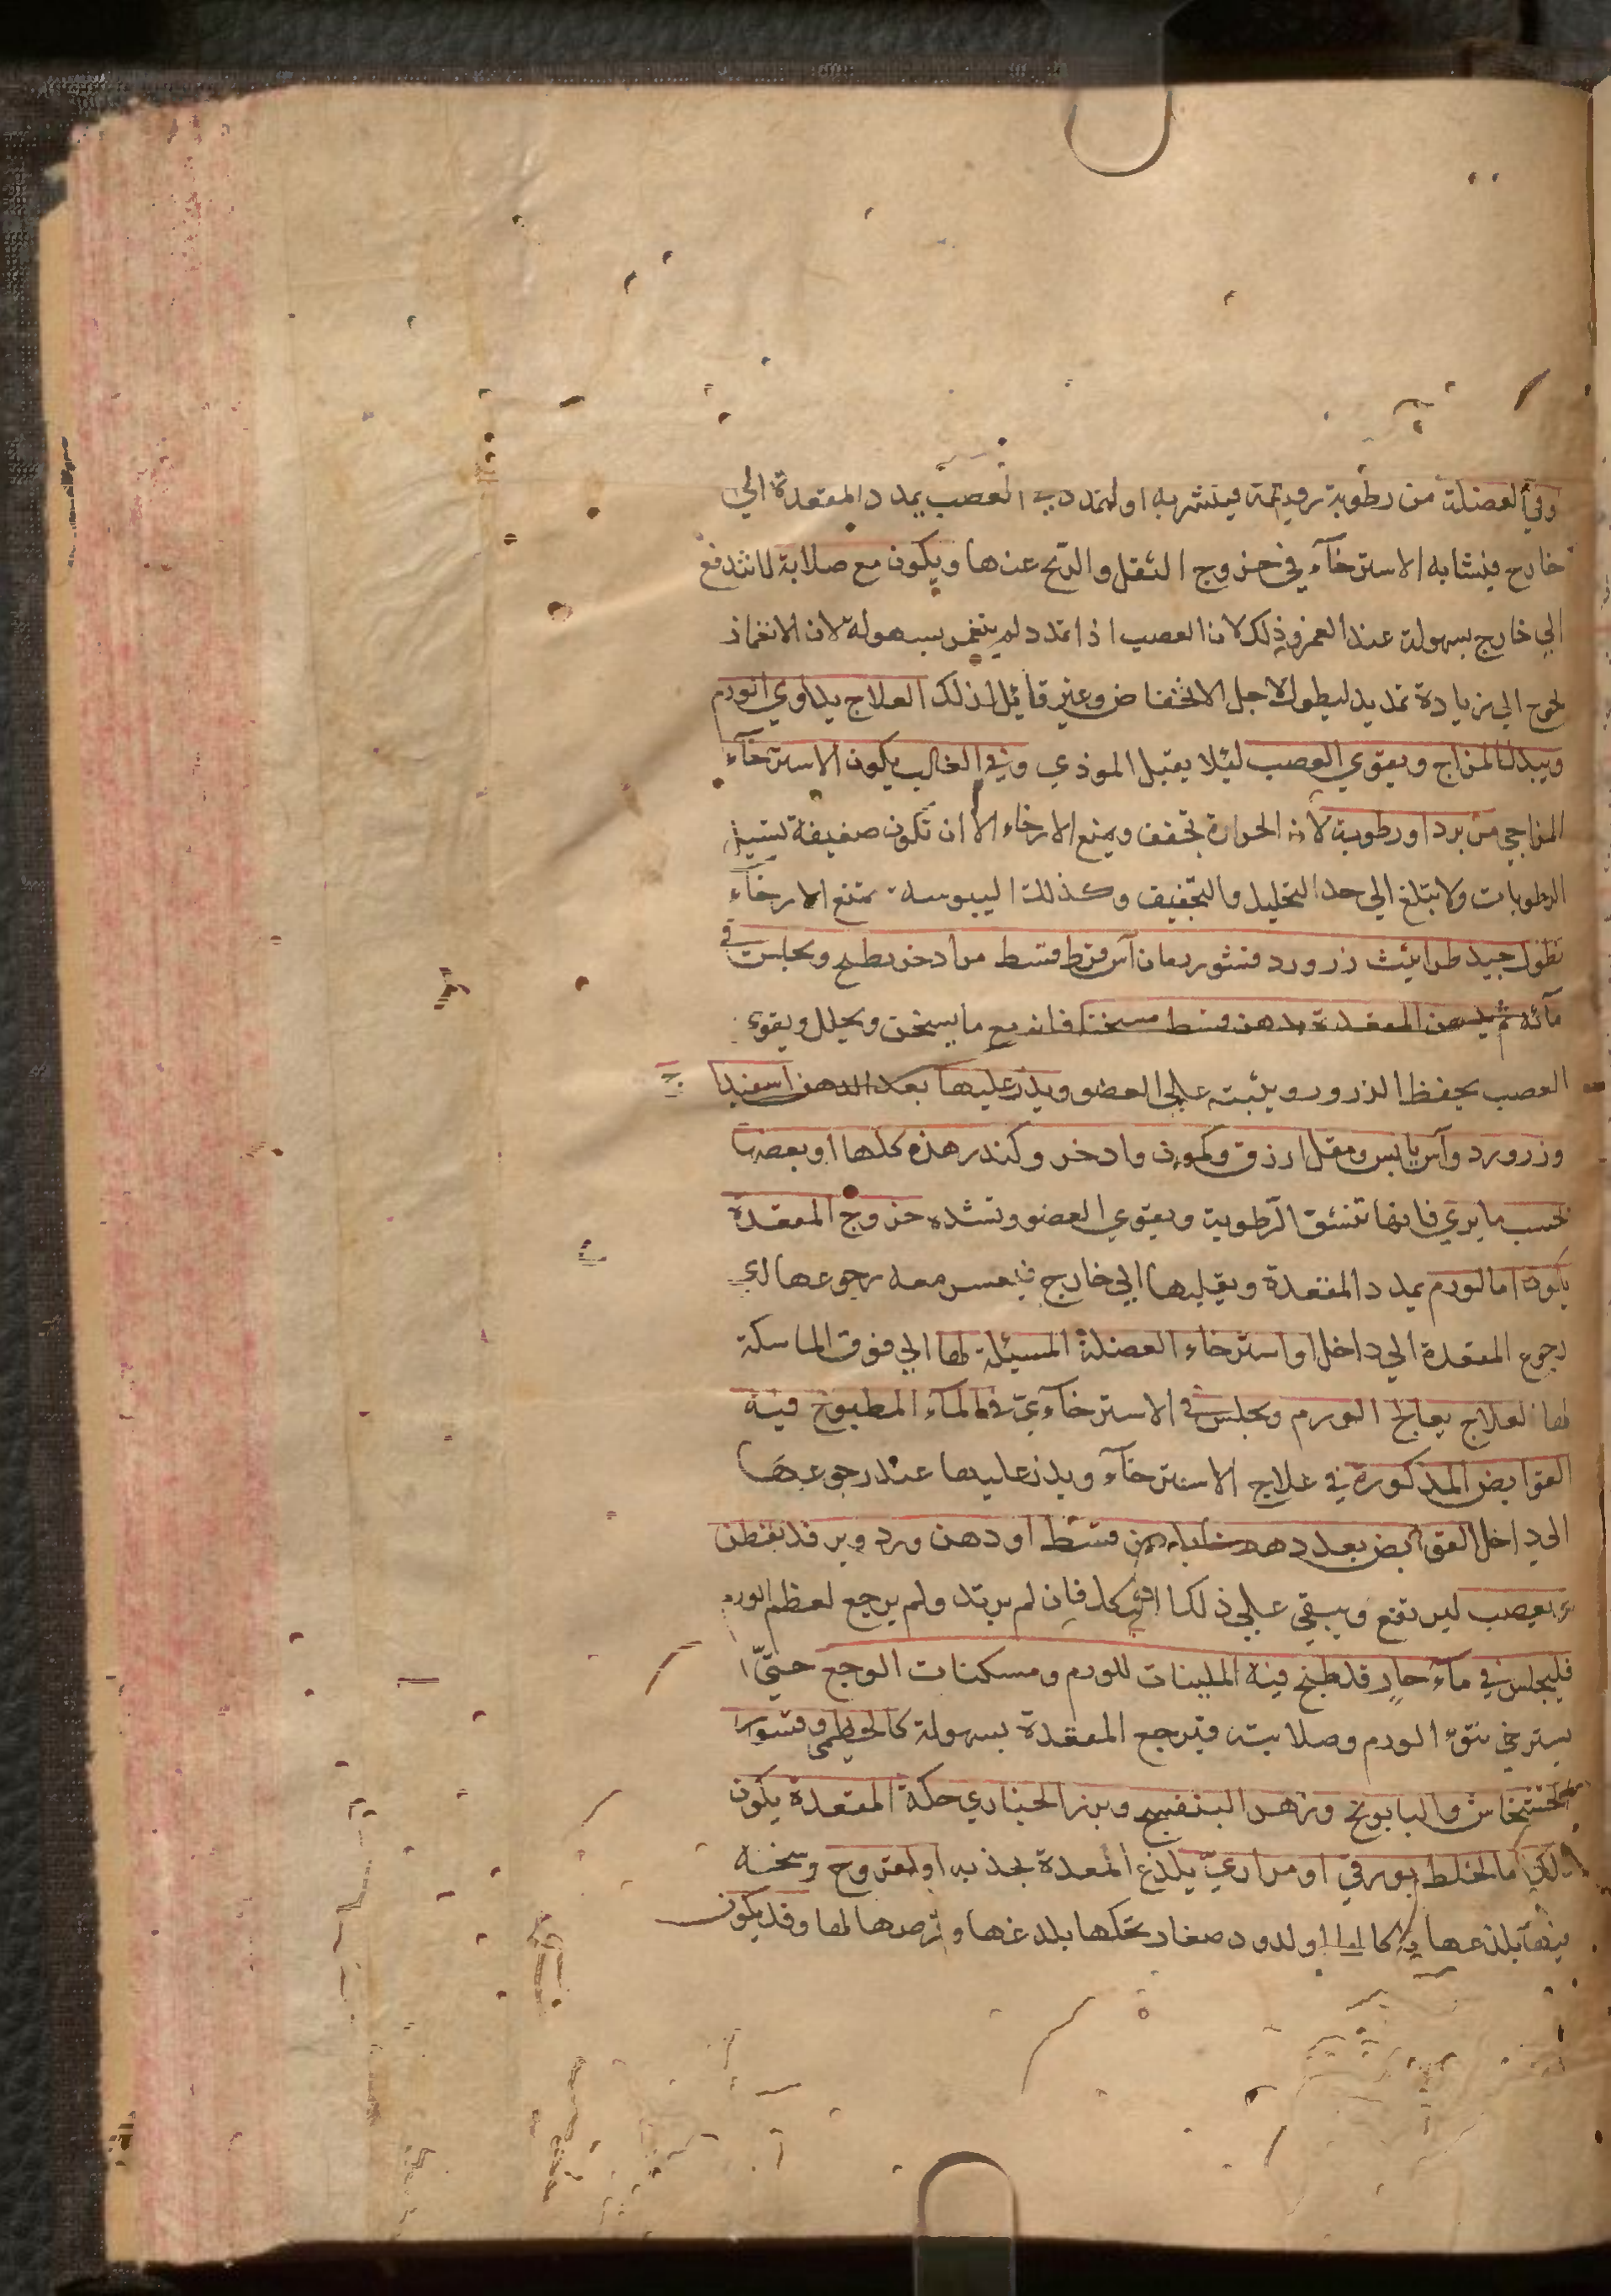 وفي العضلة من رطوبة رقيقة فينتشر به او لتمدد يب العصب يمدد المقعدة الي
خارج فيشابه الاسترخآء في خروج الثقل والريح عنها ويكون مع صلابة لا تندفع
الي خارج بسهولة عند الغمز وذلك لان العصب اذا تمدد لم ينغمز بسهولة لان الانغماز
يحوج الي زيادة تمديد ليطول لاجل الانخفاض وغير قائل لذلك العلاج يداوي الورم
ويبدل المزاج ويقوي العصب ليلا يقبل الموذي وفي الغالب يكون الاسترخآء
المزاجي من برد او رطوبة لان الحرارة تجفف ويمنع الارخاء الا ان تكون ضعيفة تسيل
الرطوبات ولا تبلغ الي حد التحليل والتجفيف وكذلك اليبوسة تمنع الارخآء
نطول جيد طراثيث زرورد قشور رمان آس قرظ قسط مر اذخر يطبخ ويجلس في
مآئه ثم يدهن المقعدة بدهن قسط مسخنا فانه مع ما يسخن ويحلل ويقوي
العصب يحفظ الذرور ويثبته علي العضو ويذر عليها بعد الدهن اسفيدا
وزرورد وآس يابس ومقل ازرق وكمون واذخر وكندر هذه كلها او بعضها
بحسب ما يري فانها تنشق الرطوبة ويقوي العضو وتشده خروج المقعدة
يكون اما لورم يمدد المقعدة ويقلبها الي خارج فيعسر معه رجوعها اي
رجوع المقعدة الي داخل او استرخاء العضلة المسيلة لها الي فوق الماسكة
لها العلاج يعالج الورم ويجلس في الاسترخآءي في المآء المطبوخ فيه
القوابض المذكورة في علاج الاسترخآء ويذر عليها عند رجوعها
الي داخل القوابض بعد دهنها بدهن قسط او دهن ورد وير فد بقطن
ويعصب ليرتفع ويبقي علي ذلك الشكل فان لم يرتد ولم يرجع لعظم الورم
فليجلس في مآء حار قد طبخ فيه الملينات للورم ومسكنات الوجع حتي
يسترخي نتوء الورم وصلابته فيرجع المقعدة بسهولة كالخطمي وقشور
الخشخاش والبابونج وزهر البنفسج وبزر الخبازي حكة المقعدة يكون
ذلك اما لخلط بورقي او مراري يلذع المعدة بجذبه او لقروح وسخة
فيها يلذعها او لدود صغار تحكها بلدغها وقرصها لها وقد يكون